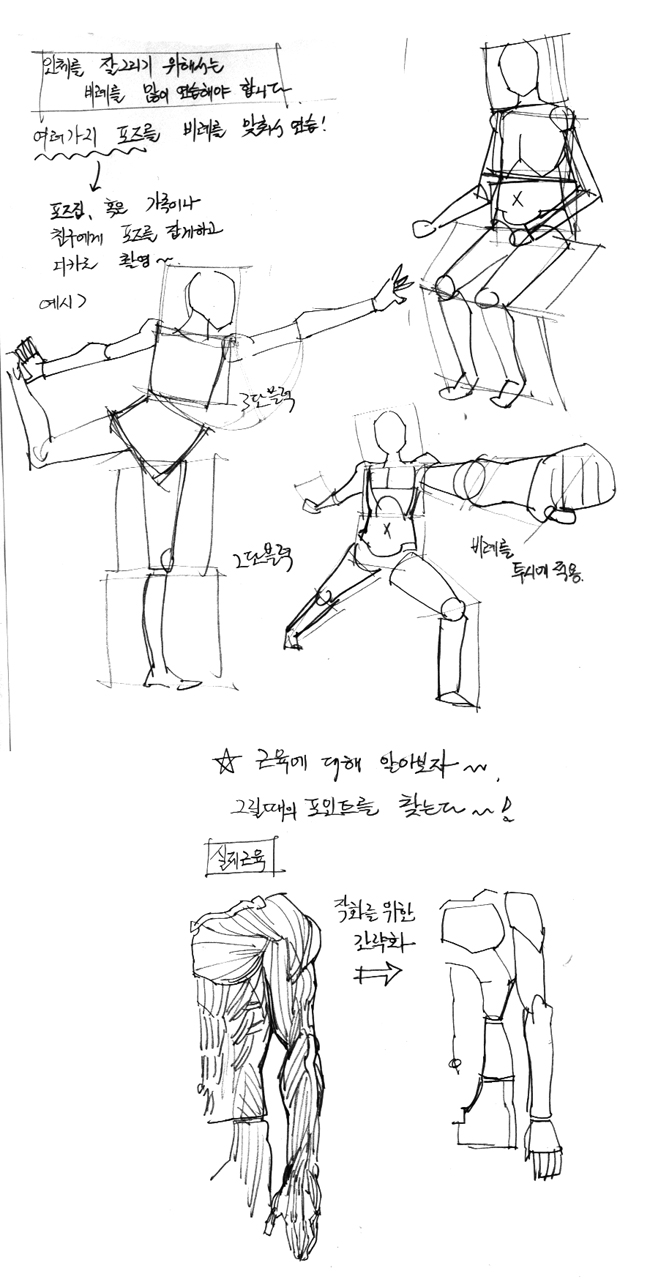 인체를 잘 그리기 위해서는
비례를 많이 연습해야 합니다.
여러가지 포즈를 비례를 맞춰서 연습!
포즈집, 혹은 가족이나
친구에게 포즈를 잡게하고
디카로 촬영~
예시>
3단블럭
2단블럭
비례를
투시에 적용.
☆ 근육에 대해 알아보자~.
그릴때의 포인트를 찾는다~!
실제근육
작화를 위한
간략화